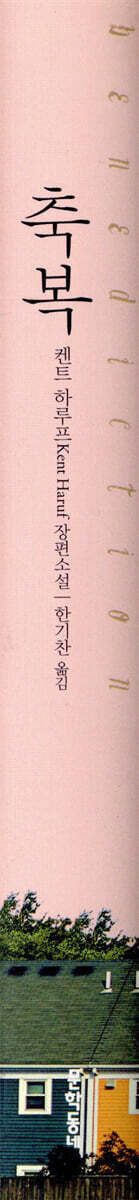 benediction
축복
켄트 하루프 Kent Haruf 장편소설 | 한기찬 옮김
문학동네